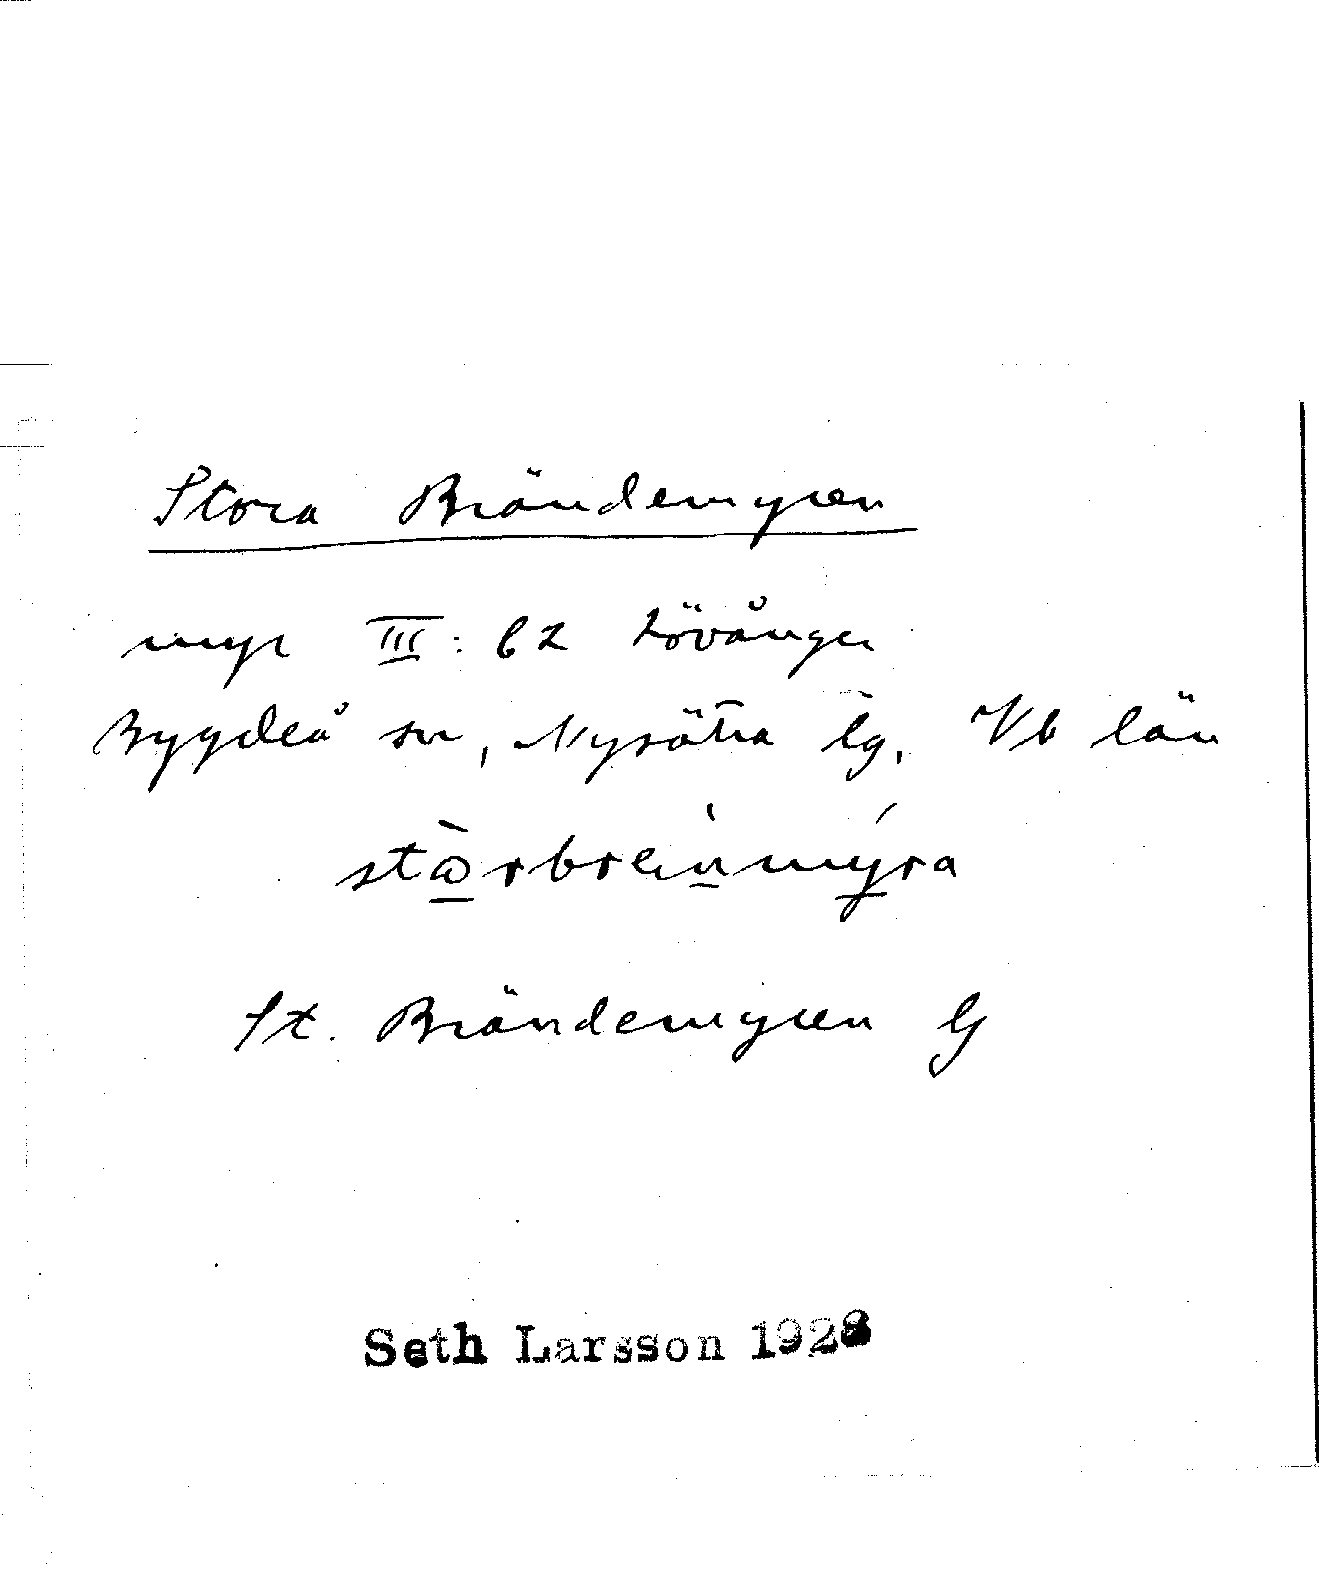 Stora Brändemyren
myr III: b2 Lövånger
Bygdeå sn, Nysätra lg. Vb län
stɷ̀rbrein̲mýra
St. Brändemyren G
Seth Larsson 1928